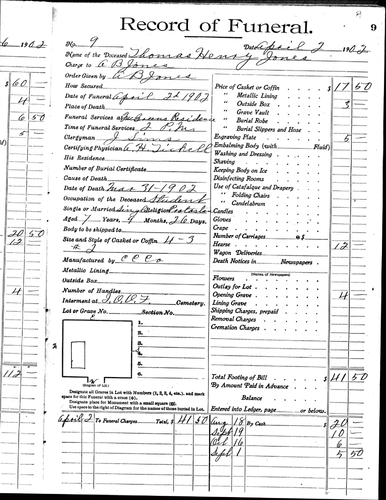 9
Record of Funeral.
9
No. 9
Date April 2 1902
Name of the Deceased Thomas Henry Jones
Charge to A B Jones
Order Given by A B Jones
Hour Secured
Date of Funeral April 2d 1902
Place of Death
Funeral Services at Residence
Time of Funeral Services 2 P.M.
Clergyman J
Certifying Physician
His Residence
Number of Burial Certificate
Cause of Death
Date of Death Mar 31-1902
Occupation of the Deceased Student
Single or Married Single Religion
Aged 7 Years, 9 Months, 26 Days
Body to be shipped to
Size and Style of Casket or Coffin 4-3
# 2
Manufactured by C C Co
Metallic Lining
Outside Box
Number of Handles
Interment at I.O.O.F Cemetery.
Lot or Grave No. Section No.
1.
2.
3.
4.
5.
6.
Diagram of Lot.
Designate all Graves in Lot with Numbers (1, 2, 3, 4, etc.), and mark
space for this Funeral with a cross (+).
Designate place for Monument with a small square (□).
Use space to the right of Diagram for the names of those buried in Lot.
April 2 To Funeral Charges Total, $ 41 50
Price of Casket or Coffin $ 17 50
" Metallic Lining
" Outside Box 3
" Grave Vault
" Burial Robe
" Burial Slippers and Hose
Engraving Plate
Embalming Body (with Fluid) 5
Washing and Dressing
Shaving
Keeping Body on Ice
Disinfecting Rooms
Use of Catafalque and Drapery
" Folding Chairs
" Candelabrum
Candles
Gloves
Crape
Number of Carriages @ $
Hearse 12
Wagon Deliveries
Death Notices in Newspaper
(Names of Newspapers)
Flowers
Outlay for Lot
Opening Grave 4
Lining Grave
Shipping Charges, prepaid
Removal Charges
Cremation Charges
Total Footing of Bill $ 41 50
By Amount Paid in Advance
Balance
Entered into Ledger, page or below.
Aug 18 By Cash $ 20
Sept 19 10
Oct 16 6
Sept 1 5 50
6 1902
$ 60
4
6 50
5
20 50
12
4
112